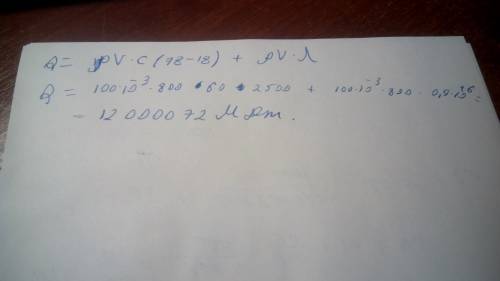 Q = ρV·c(78-18) + ρV·λ
Q = 100·10⁻³·800·60·2500 + 100·10⁻³·800·0,9·10⁶ =
= 12 000072 МДж.